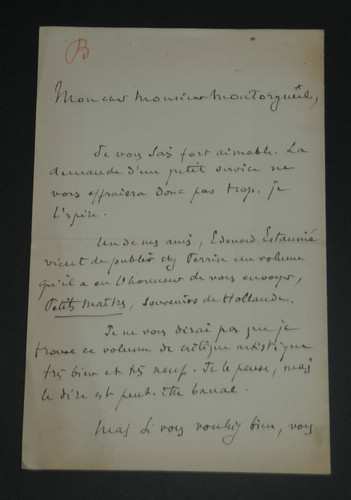 B
Mon cher Monsieur Montorgueil,
Je vous sais fort aimable. La
demande d'un petit service ne
vous effraiera donc pas trop, je
l'espère.
Un de mes amis, Edouard Estaunié
vient de publier chez Perrin un volume
qu'il a eu l'honneur de vous envoyer,
Petits Maîtres, Souvenirs de Hollande.
Je ne vous dirai pas que je
trouve ce volume de critique artistique
très bien et très neuf. Je le pense, mais
le dire est peut-être banal.
Mais si vous vouliez bien, vous